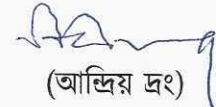 (আন্দ্রিয় দ্রং)